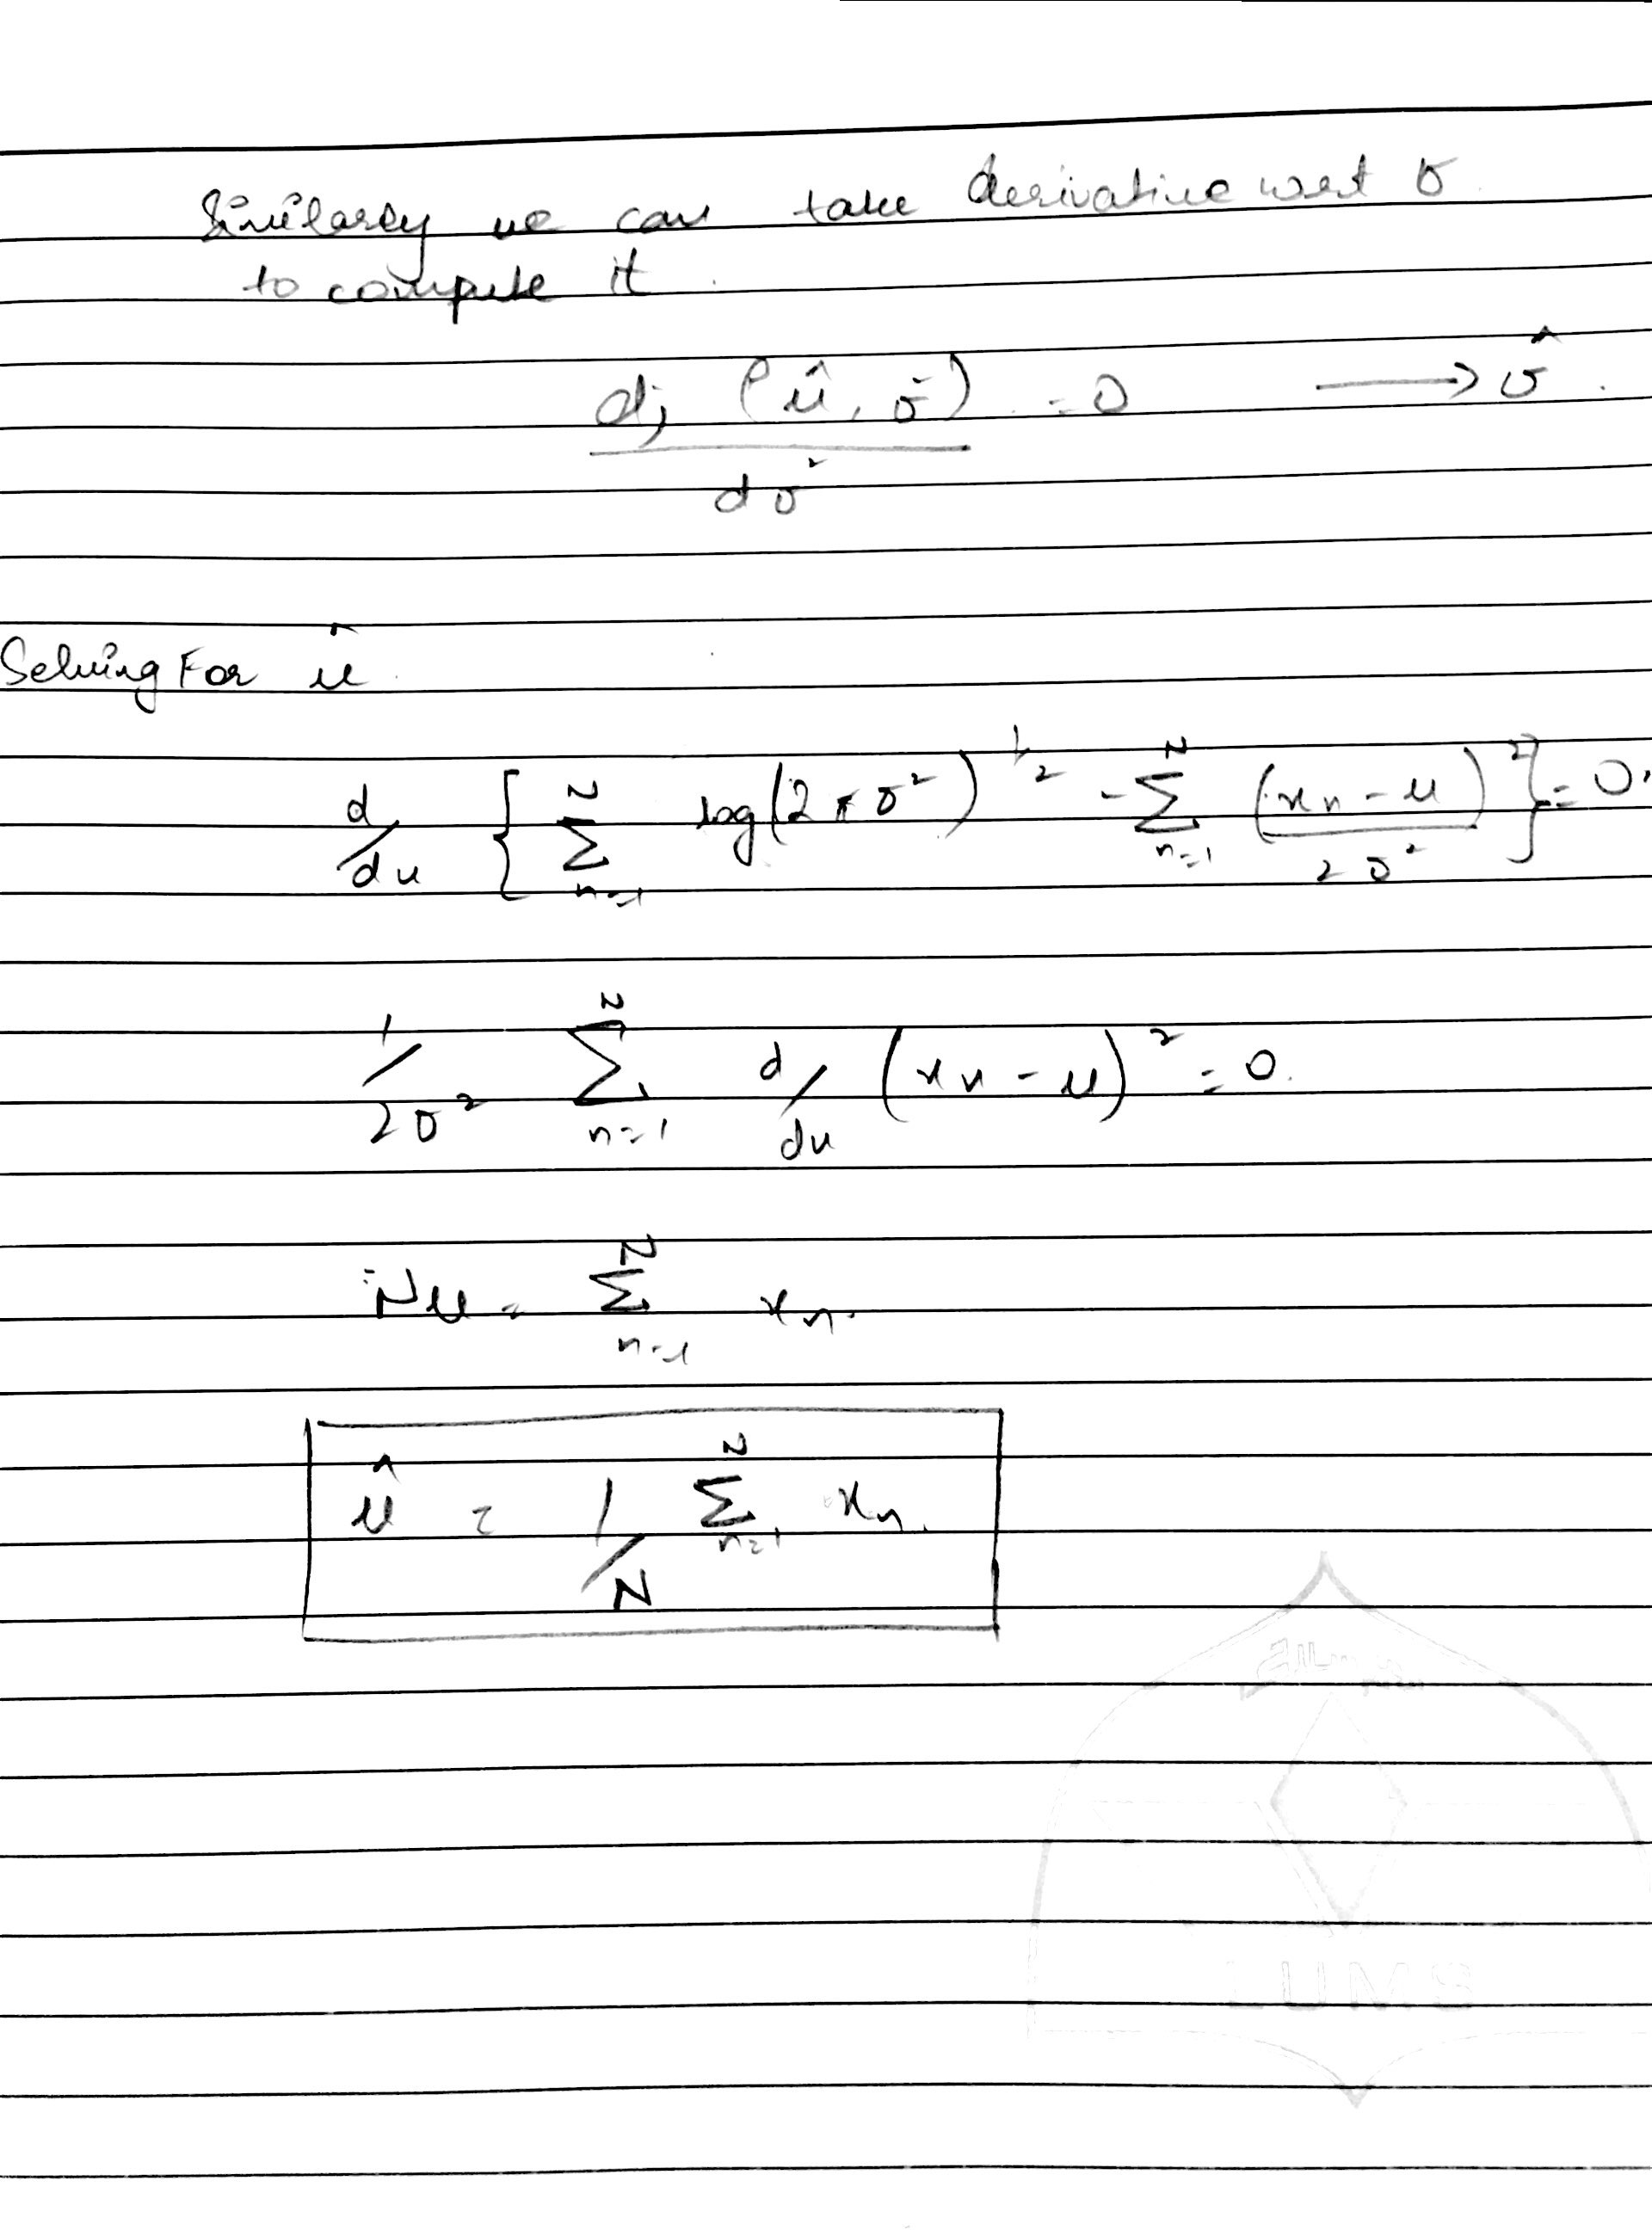 Similarly we can take derivative wrt σ
to compute it.
dj (û, σ²) / dσ² = 0 → σ̂
Solving For û
d/du { Σ_{n=1}^{N} log(2πσ²)^{1/2} - Σ_{n=1}^{N} (xn - u)² / 2σ² } = 0.
1/2σ² Σ_{n=1}^{N} d/du (xn - u)² = 0.
Nu = Σ_{n=1}^{N} xn.
û = 1/N Σ_{n=1}^{N} xn.
LUMS